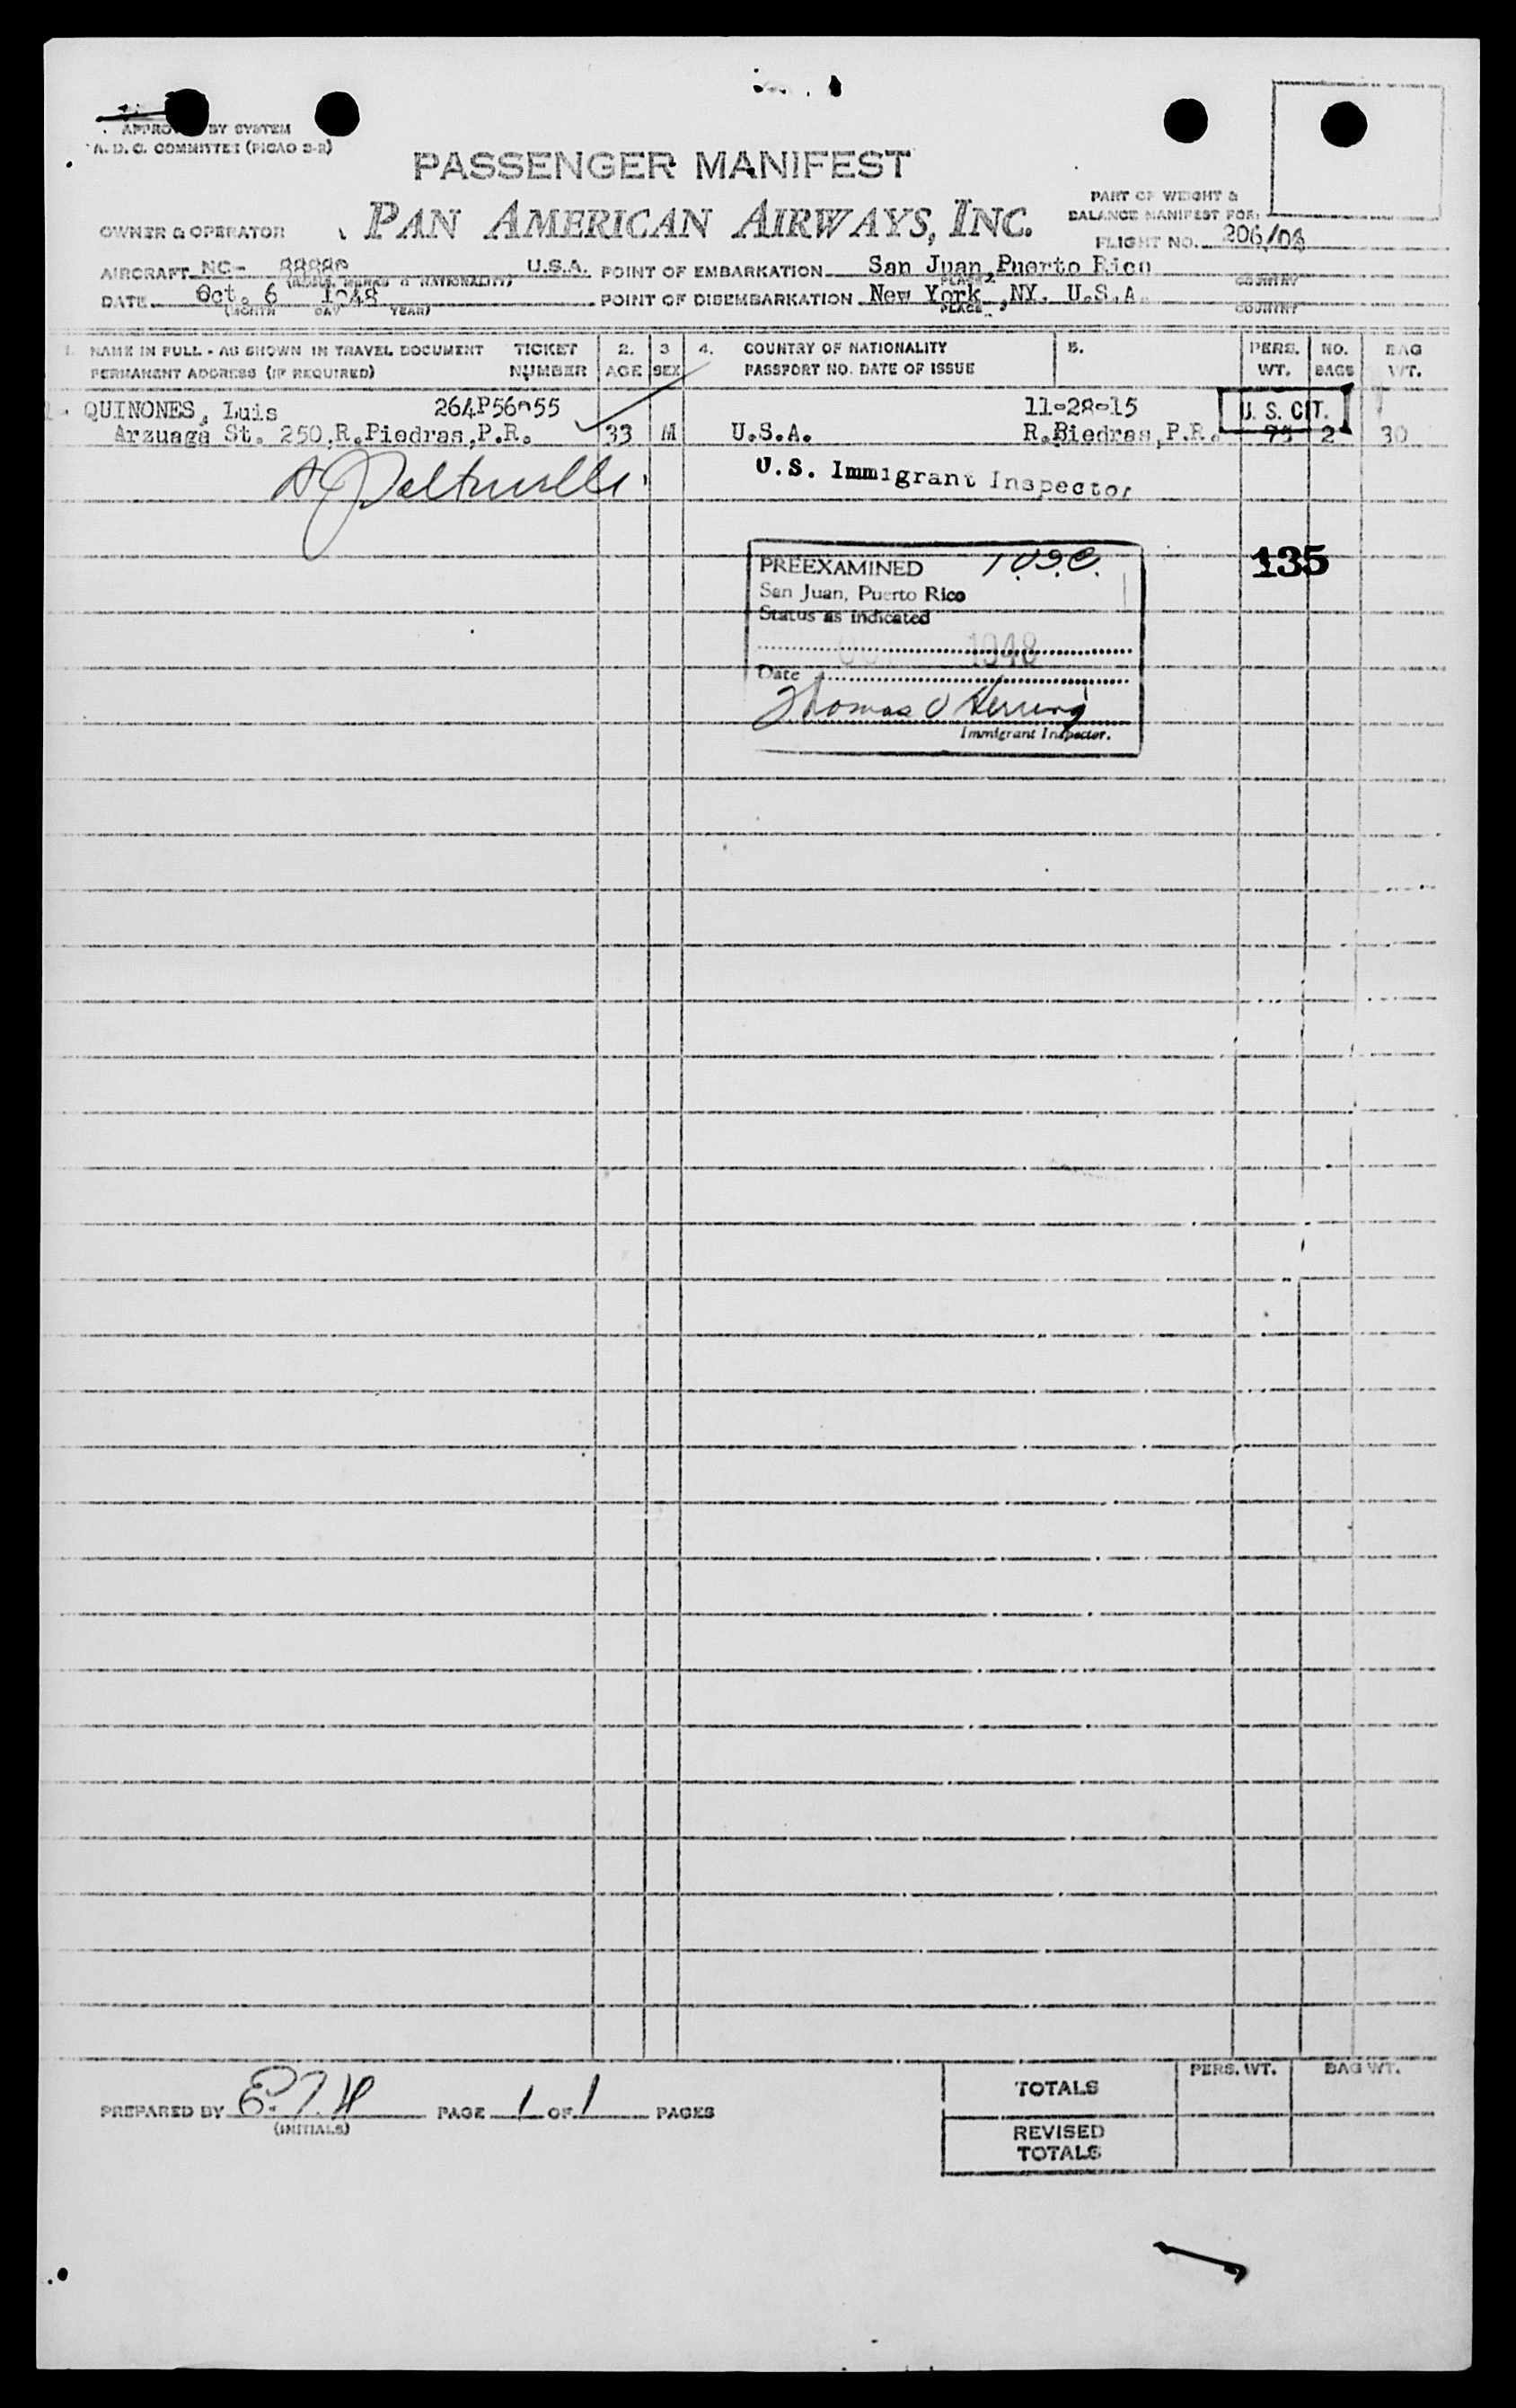 APPROVED BY SYSTEM
A. D. C. COMMITTEE (PICAO 2-2)
PASSENGER MANIFEST
OWNER & OPERATOR PAN AMERICAN AIRWAYS, INC.
PART OF WEIGHT &
BALANCE MANIFEST FOR:
FLIGHT NO. 206/
AIRCRAFT NC- U.S.A. POINT OF EMBARKATION San Juan, Puerto Rico
MARKS & NATIONALITY) PLACE COUNTRY
DATE Oct. 6 1948 POINT OF DISEMBARKATION New York ,NY. U.S.A.
(MONTH DAY YEAR) PLACE COUNTRY
1. NAME IN FULL - AS SHOWN IN TRAVEL DOCUMENT TICKET 2. 3 4. COUNTRY OF NATIONALITY 5. PERS. NO. BAG
PERMANENT ADDRESS (IF REQUIRED) NUMBER AGE SEX PASSPORT NO. DATE OF ISSUE WT. BAGS WT.
QUINONES, Luis 11-28-15 U. S. CIT.
Arzuaga St. 250,R.Piedras,P.R. 33 M U.S.A. R.Piedras,P.R. 2 30
U.S. Immigrant Inspector
PREEXAMINED
135
San Juan, Puerto Rico
Status as indicated
1948
Date
Thomas O Herring
Immigrant Inspector.
TOTALS PERS. WT. BAG WT.
PREPARED BY PAGE 1 OF 1 PAGES
(INITIALS)
REVISED
TOTALS